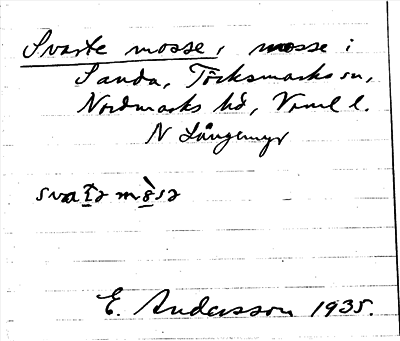 Svarte mosse, mosse i
Sanda, Töcksmarks sn,
Nordmarks hd, Värml l.
N Långemyr
svaṯə mòsə
E. Andersson 1935.